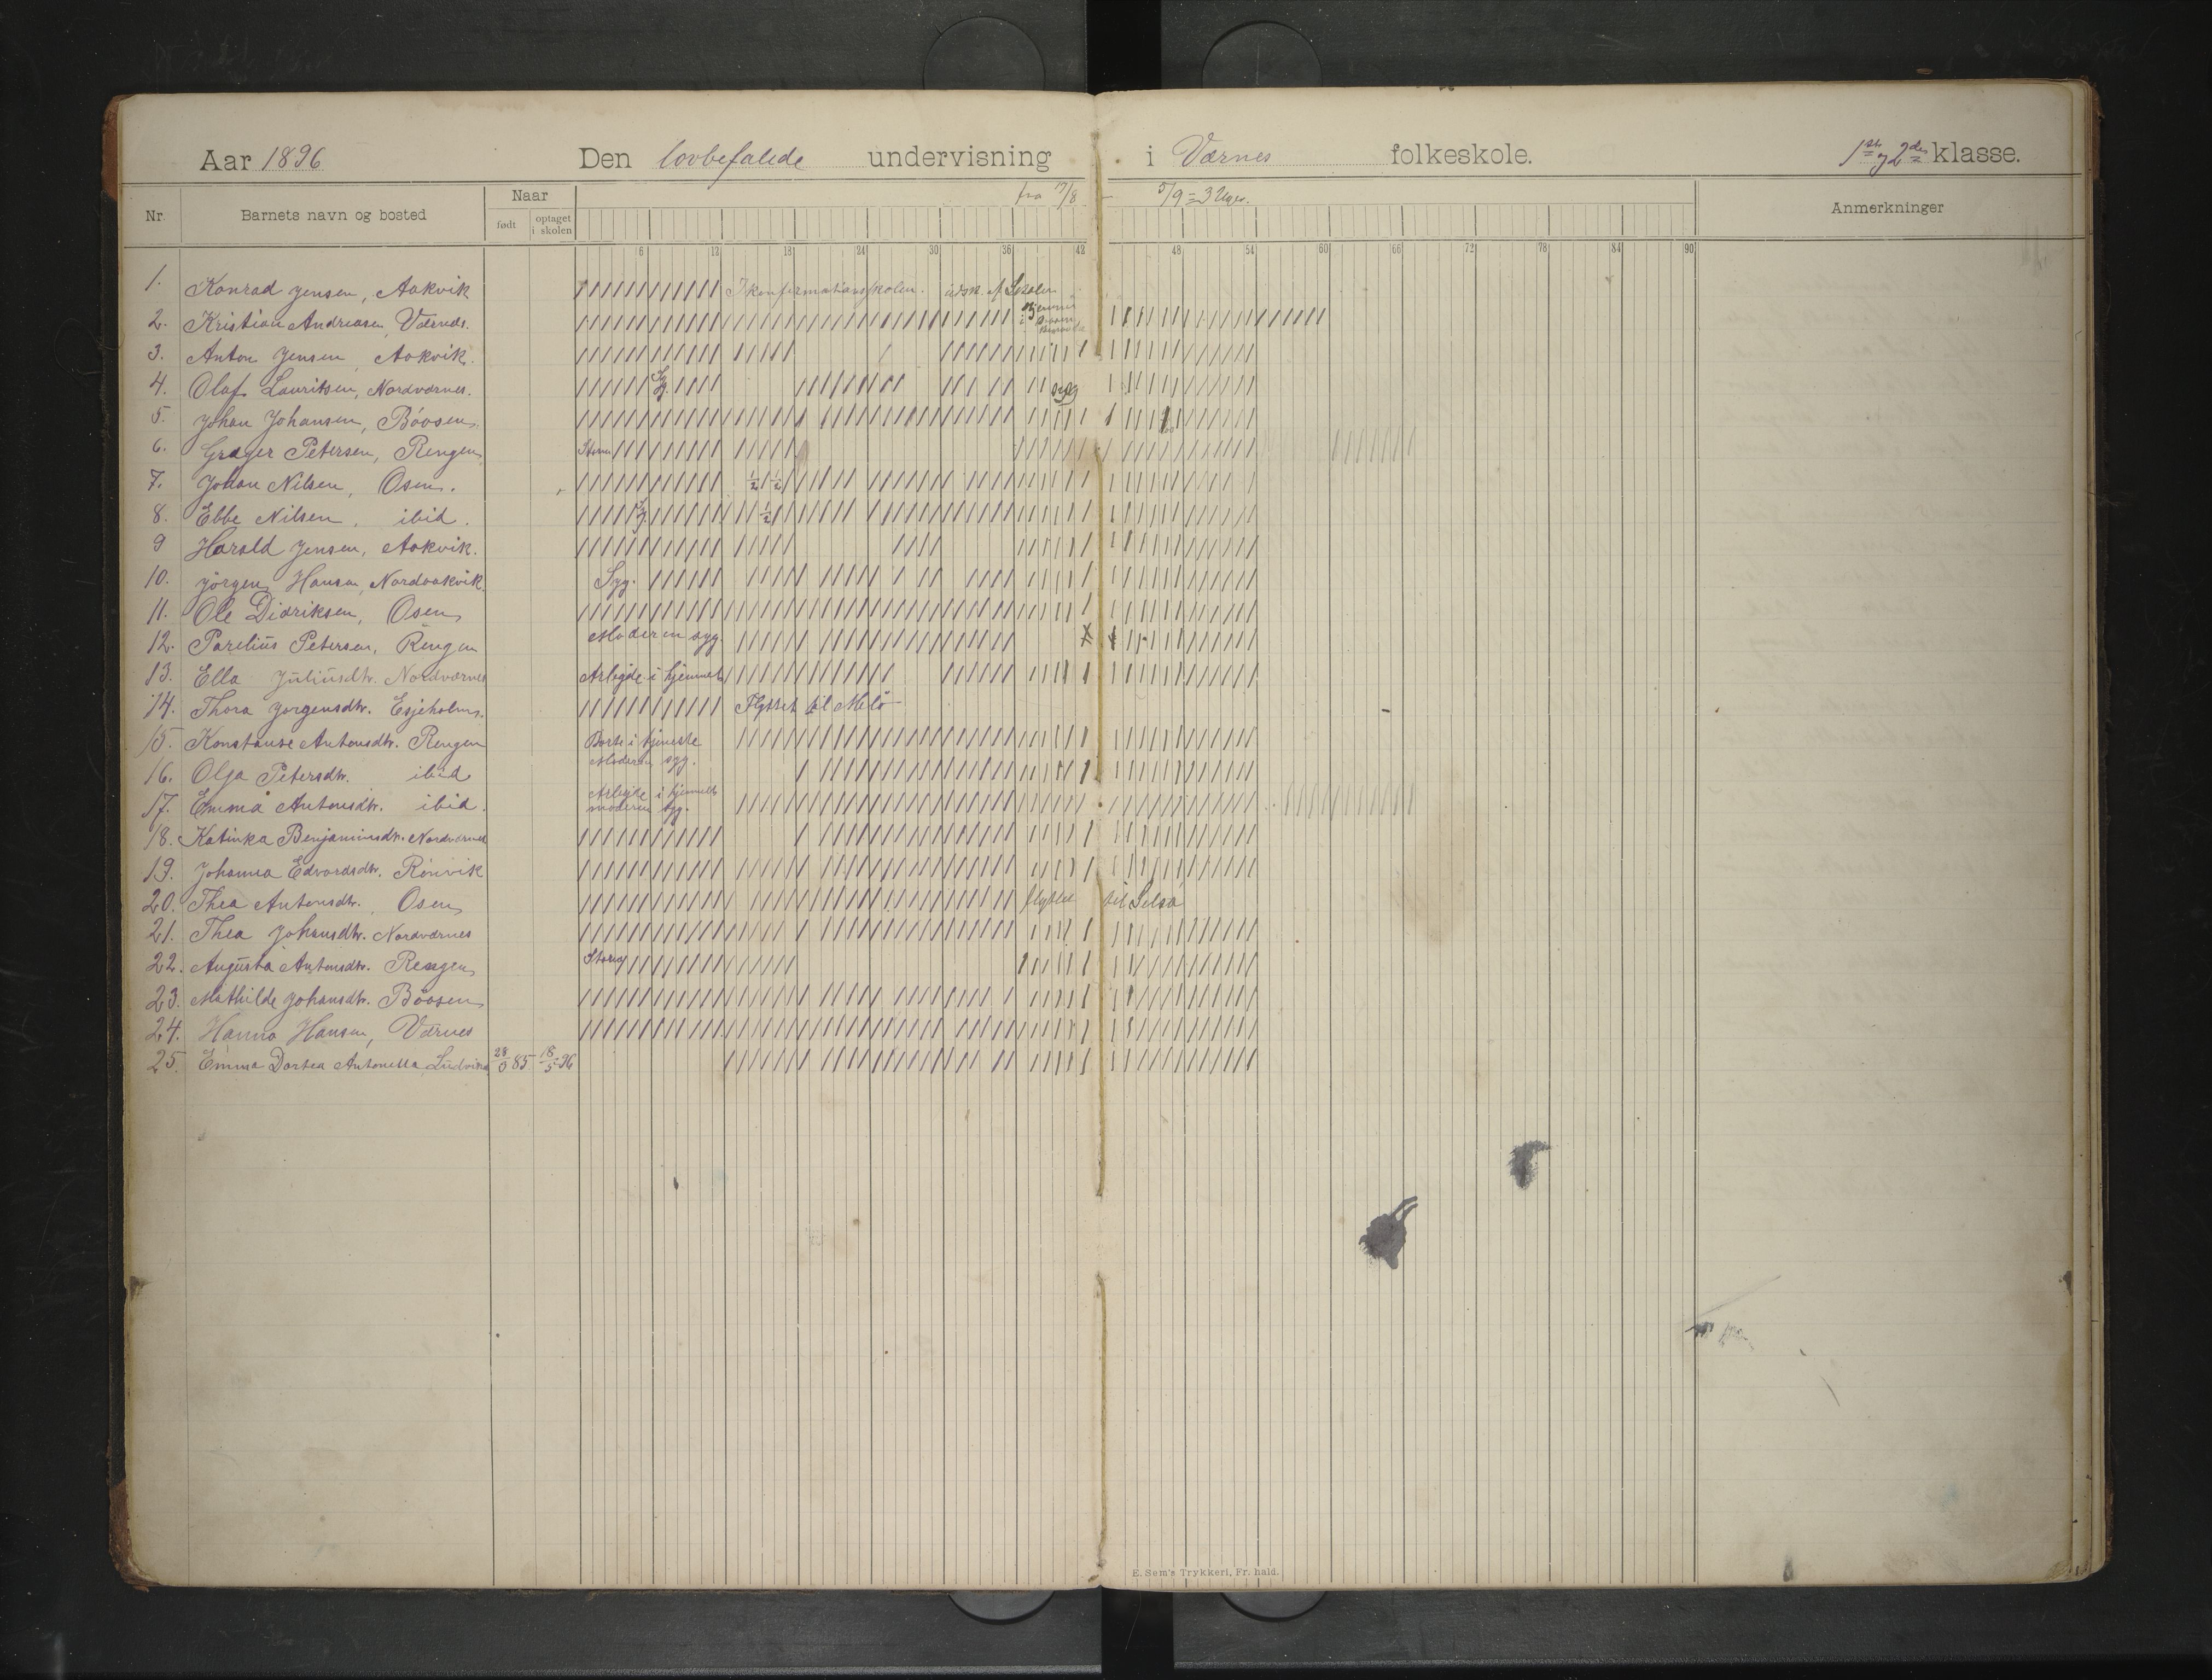 Aar 1896 Den lovbefalede undervisning i Værnes folkeskole. 1ste og 2den klasse.
Naar fra 17/8 - 5/9 = 3 Uger.
Nr. Barnets navn og bosted født optaget i skolen Anmerkninger
6 12 18 24 30 36 42 48 54 60 66 72 78 84 90
1. Konrad Jensen, Aakvik I konfirmationsskolen. udsk. af Skolen
2. Kristian Andreasen, Værnes.
3. Anton Jensen, Aakvik.
4. Olaf Lauritsen, Nordværnes. Syg. syg
5. Johan Johansen, Böosen.
6. Grøger Petersen, Rengen, Storm
7. Johan Nilsen, Osen. 1/2 1/2
8. Ebbe Nilsen, ibid. Syg. 1/2
9 Harald Jensen, Aakvik.
10. Jörgen Hansen, Nordaakvik Syg.
11. Ole Didriksen, Osen
12. Parelius Petersen, Rengen Moderen syg.
13. Ella Juliusdtr. Nordværnes Arbeide i hjemmet
14. Thora Jorgensdtr. Esjeholmn. Flyttet til Melö
15. Konstanse Antonsdtr. Rengen Borte i tjeneste
16. Olga Petersdtr. ibid Moderen syg.
17. Emma Antonsdtr. ibid. Arbeide i hjemmet moderen syg.
18. Katinka Benjaminsdtr. Nordværnes
19. Johanna Edvardsdtr. Rönvik
20. Thea Antonsdtr. Osen flyttet til Selsö
21. Thea Johansdtr. Nordværnes
22. Augusta Antonsdtr. Rengen Storm
23. Mathilde Johansdtr. Böosen
24. Hanna Hansen, Værnes
25. Emma Dortea Antonella Ludvina 85 18/5 96
E. Sem's Trykkeri, Fr. hald.